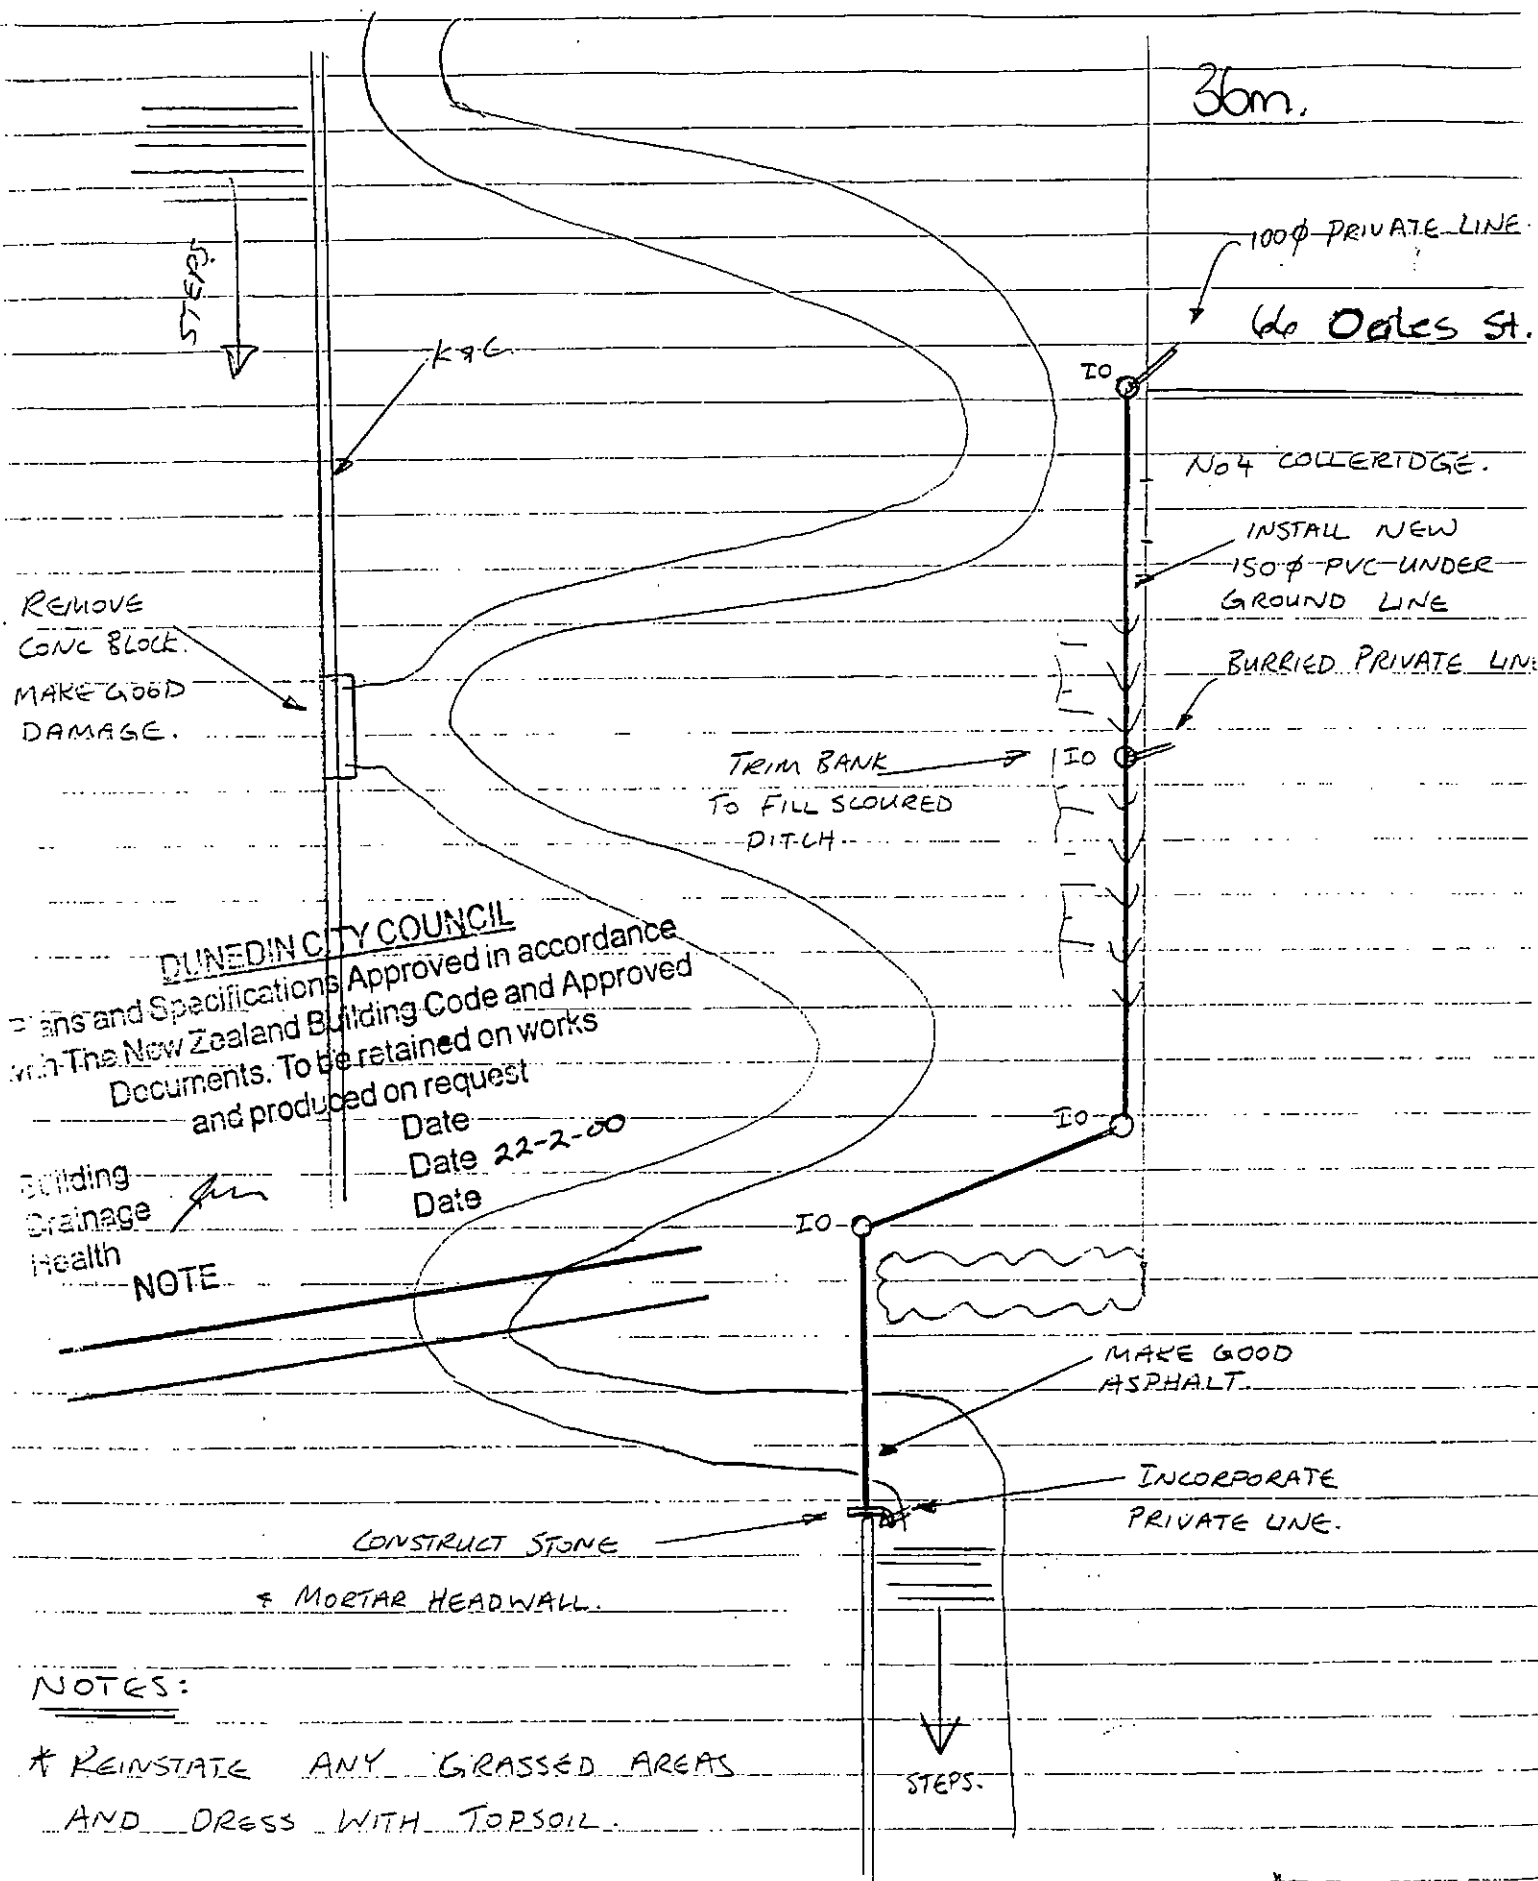 36m.
STEPS.
100φ PRIVATE LINE.
66 Oates St.
K&C
IO
No4 COLLERIDGE.
INSTALL NEW
150φ PVC UNDER
GROUND LINE
REMOVE
CONC BLOCK.
MAKE GOOD
DAMAGE.
BURRIED PRIVATE LINE
TRIM BANK
TO FILL SCOURED
DITCH.
IO
DUNEDIN CITY COUNCIL
Plans and Specifications Approved in accordance
with The New Zealand Building Code and Approved
Documents. To be retained on works
and produced on request
Building Date
Drainage Date 22-2-00
Health Date
NOTE
IO
IO
MAKE GOOD
ASPHALT.
INCORPORATE
PRIVATE LINE.
CONSTRUCT STONE
& MORTAR HEADWALL.
STEPS.
NOTES:
* REINSTATE ANY GRASSED AREAS
AND DRESS WITH TOPSOIL.